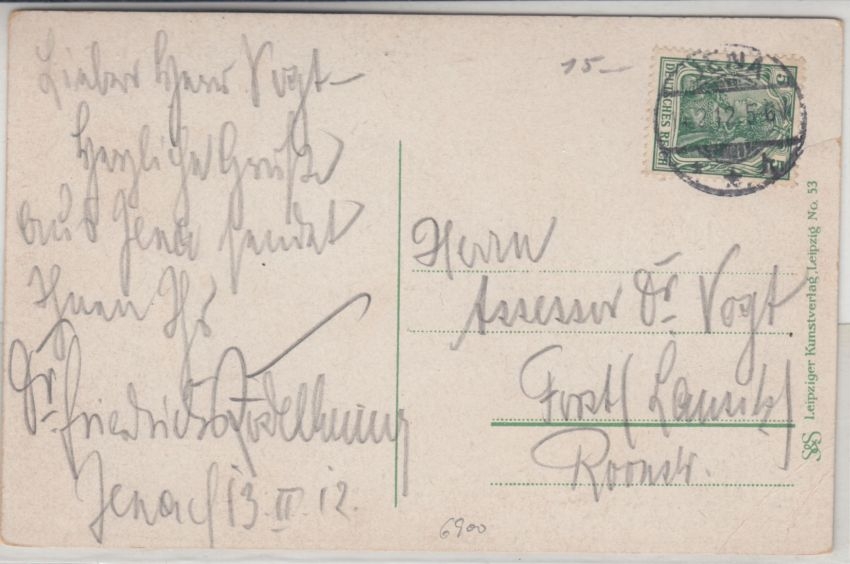 Lieber Herr Vogt –
Herzliche Grüße
aus Jena sendet
Ihnen Ihr
Dr. Friedrich
Jena 13. II. 12.
15 –
DEUTSCHES REICH
5
JENA
12. 5-6
Herrn
Assessor Dr. Vogt
Forst (Lausitz)
Roonstr.
Leipziger Kunstverlag, Leipzig No. 53
6900